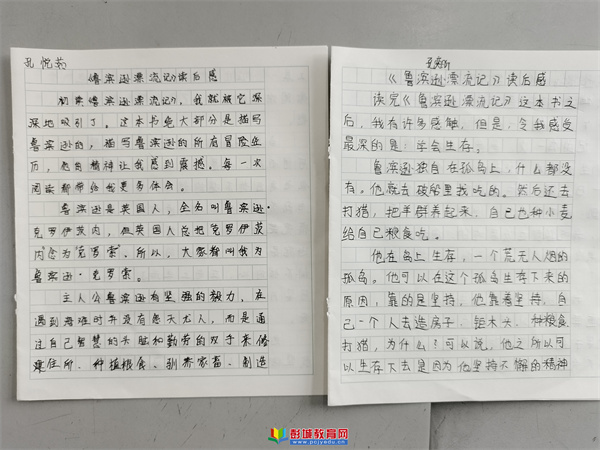 孔悦菀
《鲁滨逊漂流记》读后感
初读《鲁滨逊漂流记》,我就被它深
深地吸引了。这本书绝大部分是描写
鲁滨逊的,描写鲁滨逊的所有冒险经
历,他的精神让我感到震撼。每一次
阅读都带给我更多体会。
鲁滨逊是英国人,全名叫鲁滨逊·
克罗伊茨内,但英国人总把克罗伊茨
内念为"克罗索",所以,大家都叫他为
鲁滨逊·克罗索。
主人公鲁滨逊有坚强的毅力,在
遇到苦难时并没有怨天尤人,而是通
过自己智慧的头脑和勤劳的双手来修
建住所、种植粮食、驯养家畜、制造
《鲁滨逊漂流记》读后感
读完《鲁滨逊漂流记》这本书之
后,我有许多感触,但是,令我感受
最深的是:学会生存。
鲁滨逊独自在孤岛上,什么都没
有。他就去破船里找吃的。然后还去
打猎,把羊群养起来,自己也种小麦
给自己粮食吃。
他在岛上生存,一个荒无人烟的
孤岛。他可以在这个孤岛生存下来的
原因,靠的是坚持,他靠着坚持,自
己一个人去造房子、锯木头、种粮食、
打猎,为什么?可以说,他之所以可
以生存下去是因为他坚持不懈的精神
彭城教育网
www.pcjyedu.cn